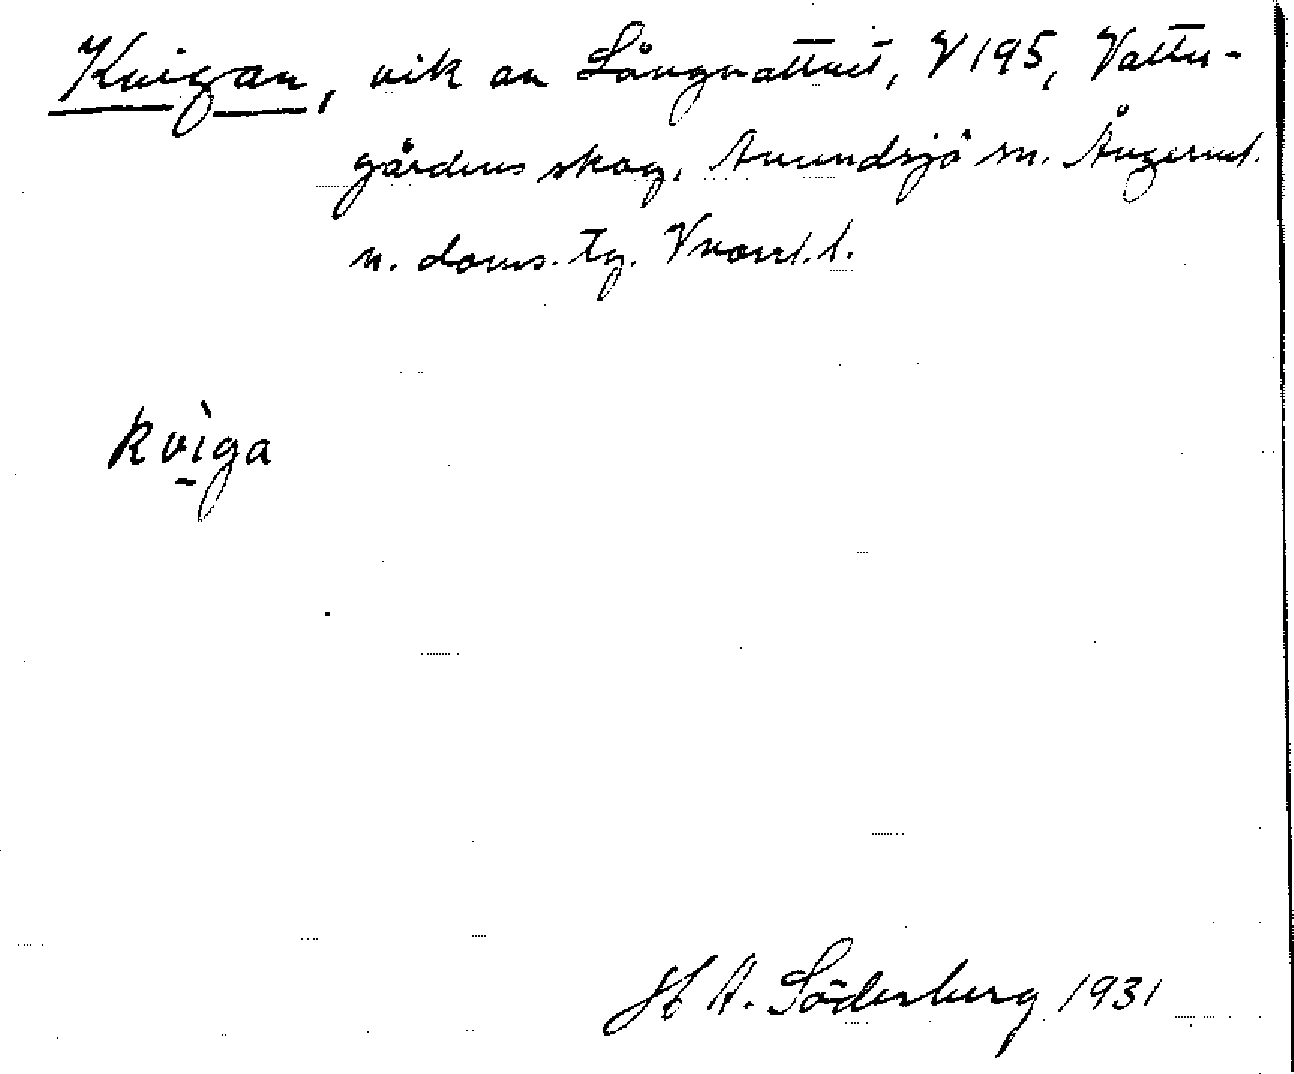 Kvigan, vik av Långvattnet, V195, Vattu-
gårdens skog, Anundsjö sn. Ångerml.
n. doms. tg. Vnorrl. l.
kvìga
H A. Söderberg 1931